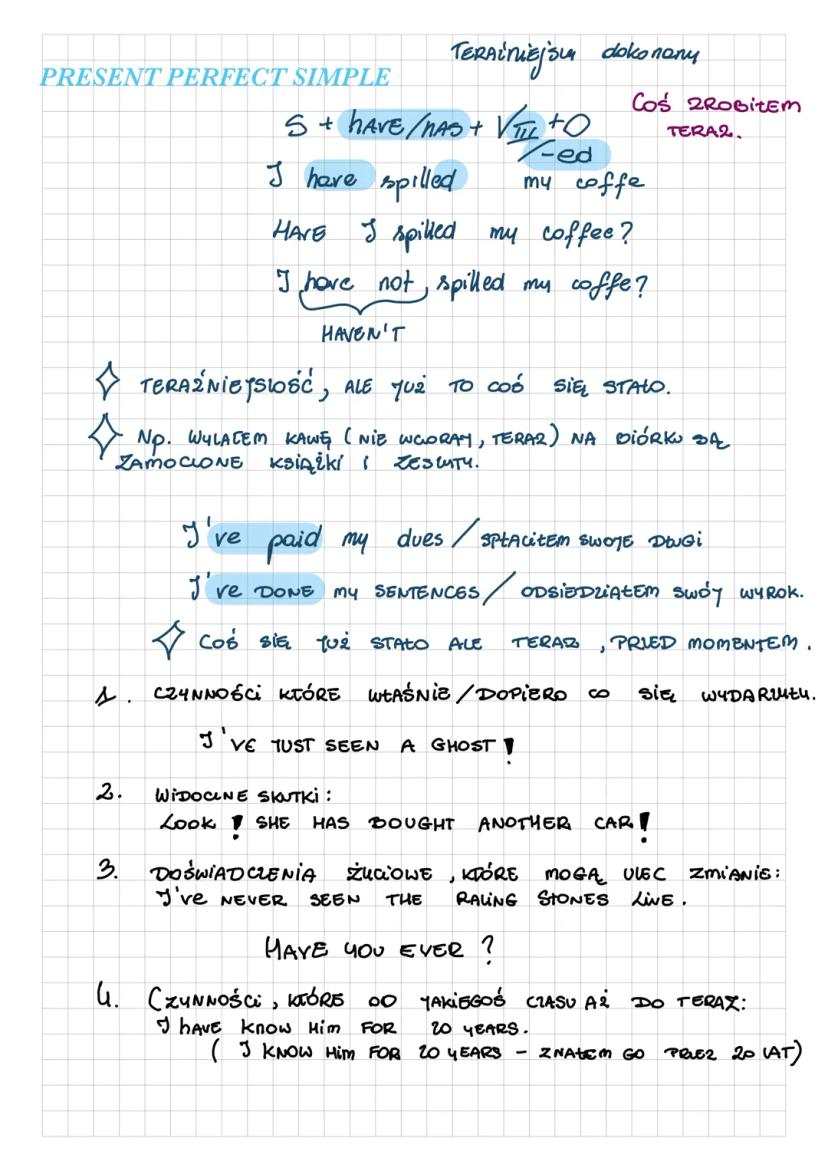 TERAŹNIEJSZY dokonany
PRESENT PERFECT SIMPLE
COŚ ZROBIŁEM
TERAZ.
S + HAVE/HAS + V III + O
/-ed
I have spilled my coffe
HAVE I spilled my coffee?
I have not spilled my coffe?
HAVEN'T
TERAŹNIEJSZOŚĆ, ALE JUŻ TO COŚ SIĘ STAŁO.
Np. WYLAŁEM KAWĘ (NIE WCZORAJ, TERAZ) NA BIÓRKU SĄ
ZAMOCZONE KSIĄŻKI I ZESZYTY.
I've paid my dues / SPŁACIŁEM SWOJE DŁUGI
I've DONE my SENTENCES / ODSIEDZIAŁEM SWÓJ WYROK.
COŚ SIĘ JUŻ STAŁO ALE TERAZ, PRZED MOMENTEM.
1. CZYNNOŚCI KTÓRE WŁAŚNIE/DOPIERO CO SIĘ WYDARZYŁY.
I'VE JUST SEEN A GHOST!
2. WIDOCZNE SKUTKI:
LOOK! SHE HAS BOUGHT ANOTHER CAR!
3. DOŚWIADCZENIA ŻYCIOWE, KTÓRE MOGĄ ULEC ZMIANIE:
I've NEVER SEEN THE RALING STONES LIVE.
HAVE YOU EVER?
4. CZYNNOŚCI, KTÓRE OD JAKIEGOŚ CZASU AŻ DO TERAZ:
I HAVE KNOW HIM FOR 20 YEARS.
( I KNOW HIM FOR 20 YEARS - ZNAŁEM GO PRZEZ 20 LAT)